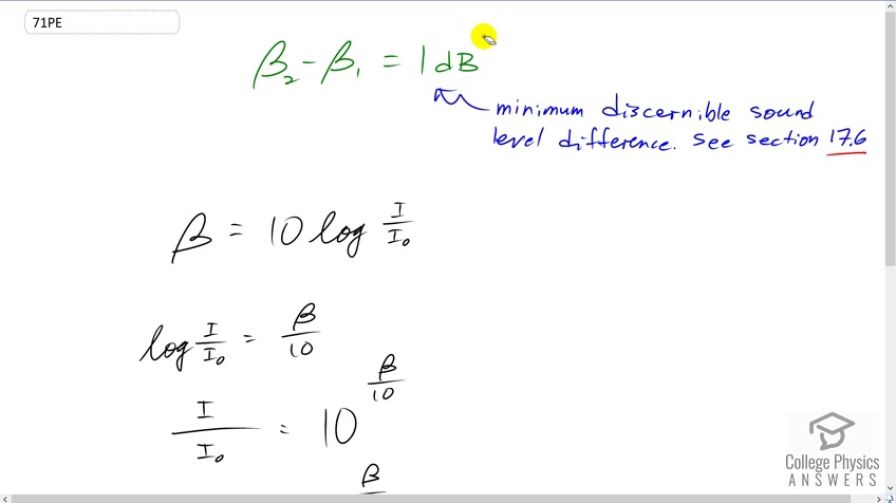 71PE
β₂ - β₁ = 1 dB
minimum discernible sound
level difference. See section 17.6
β = 10 log I/I₀
log I/I₀ = β/10
I/I₀ = 10^(β/10)
β
College Physics
ANSWERS